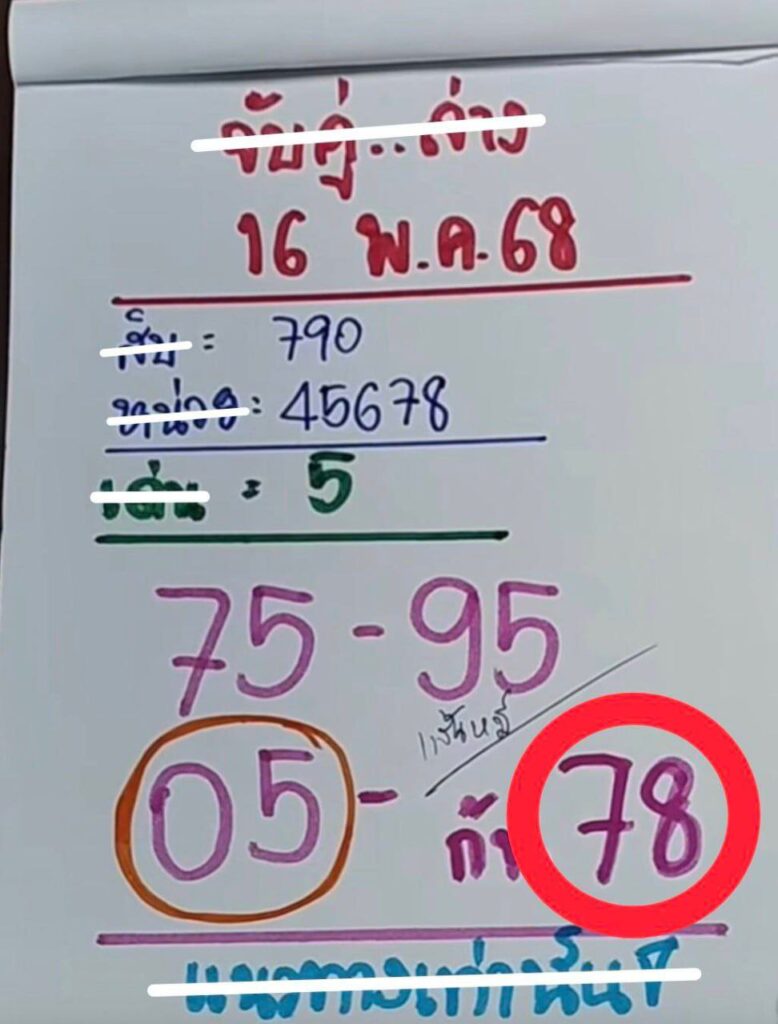 จับคู่..ล่าง
16 พ.ค.68
สิบ : 790
หน่วย : 45678
เด่น : 5
75-95
05-
กัน 78
แนวทางเท่านั้น